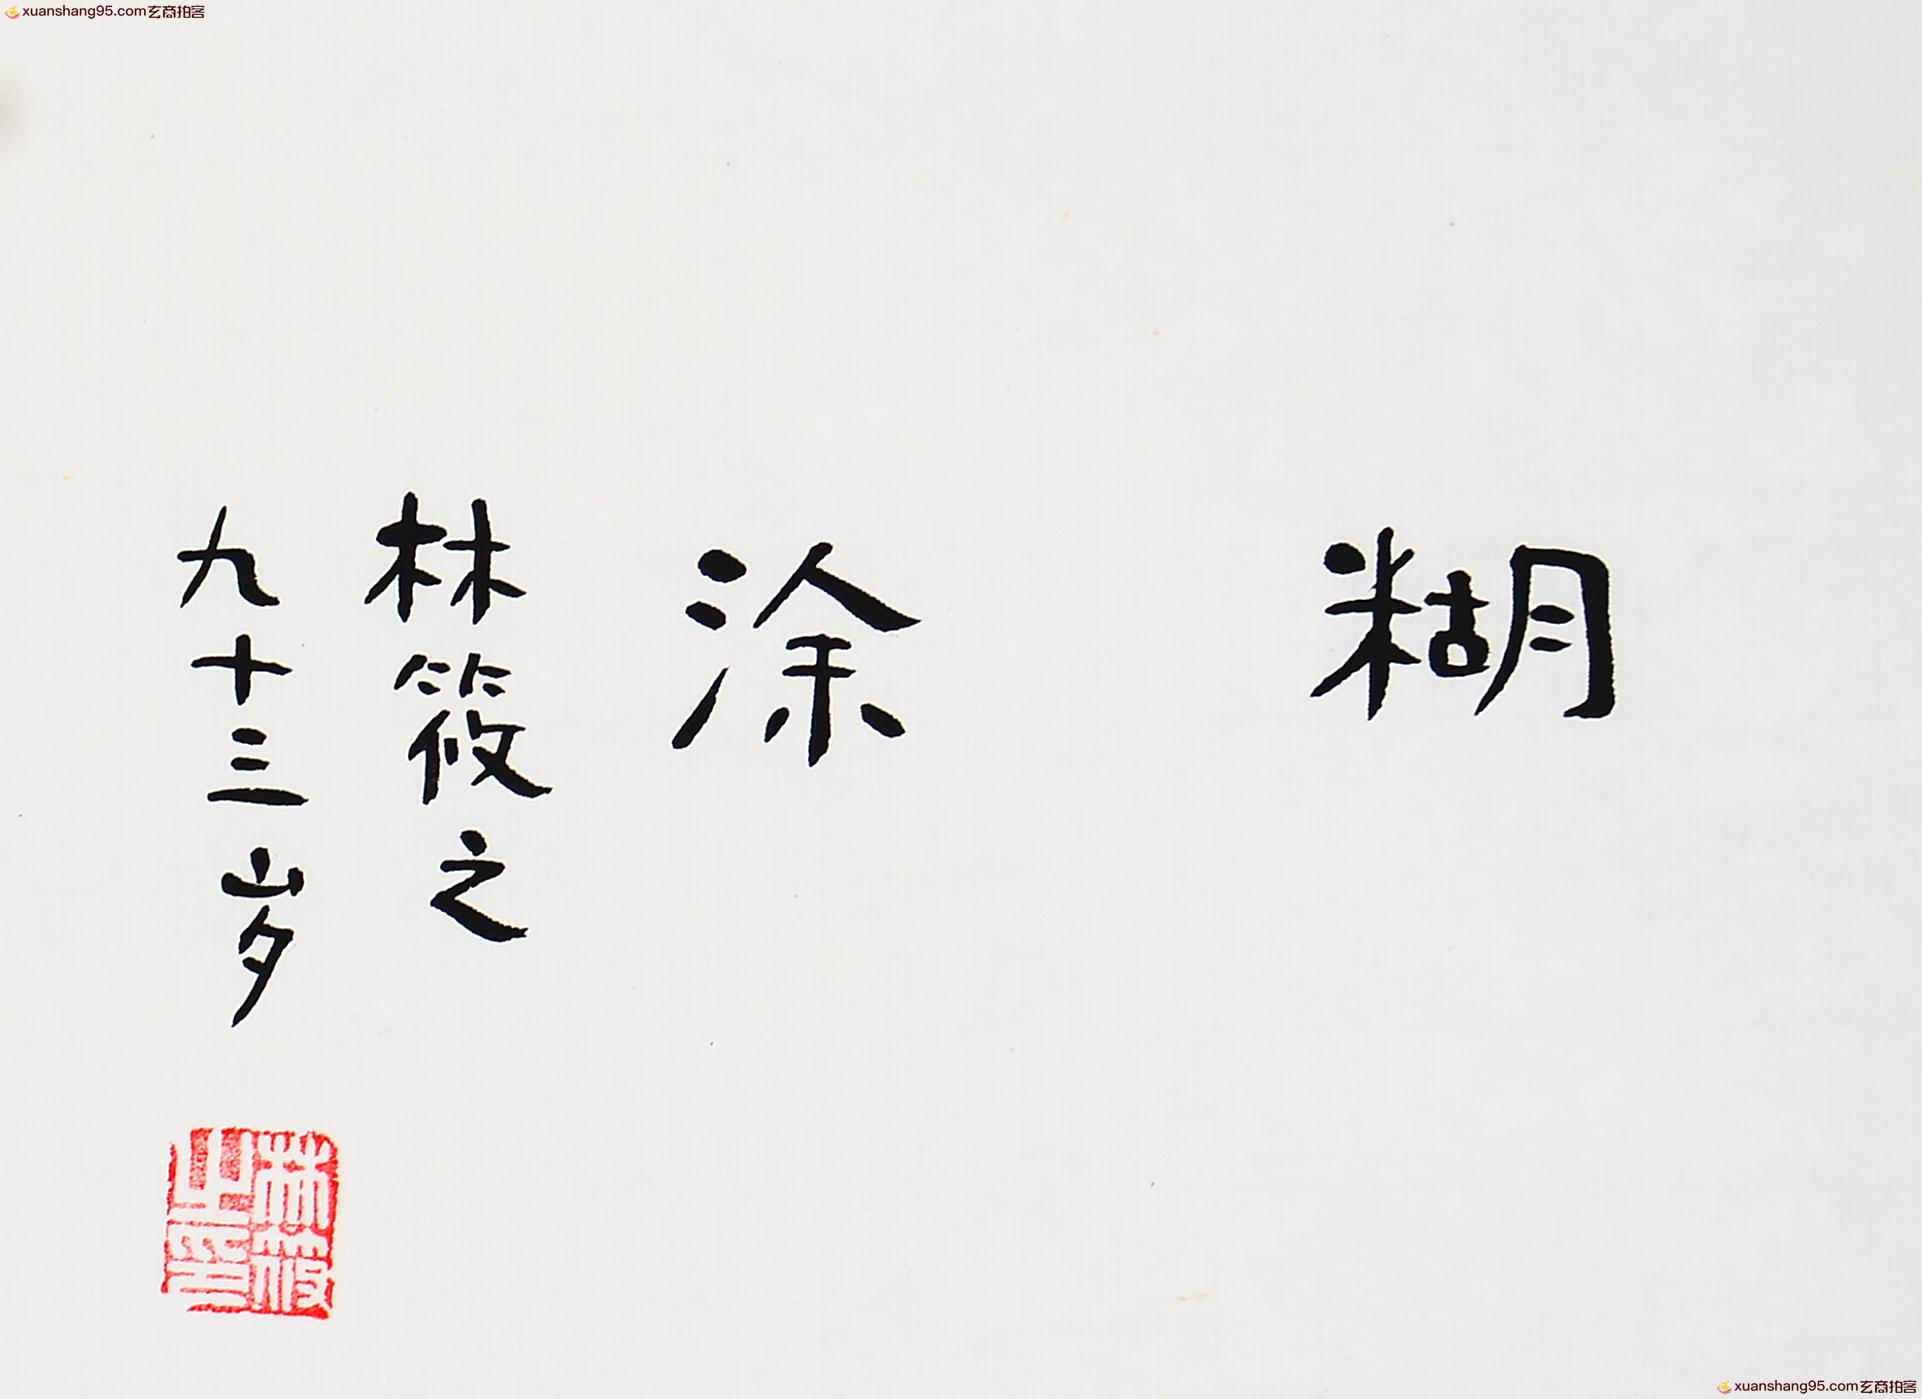 xuanshang95.com玄商拍客
糊涂
林筱之
九十三岁
林筱之印
xuanshang95.com玄商拍客